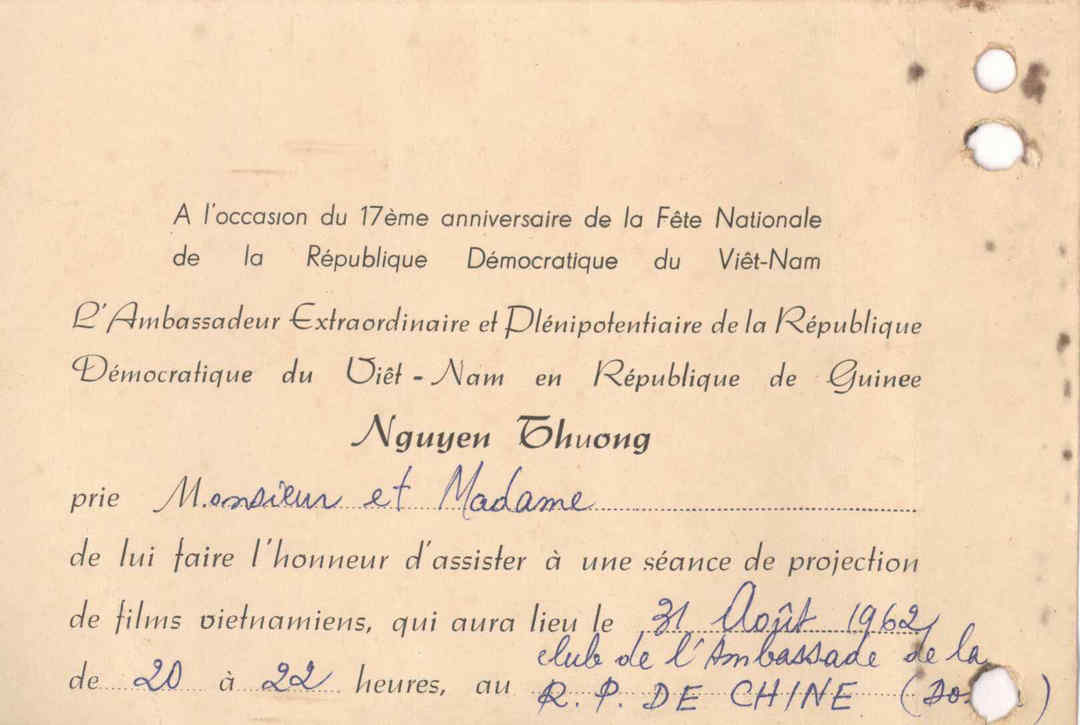 A l'occasion du 17ème anniversaire de la Fête Nationale
de la République Démocratique du Viêt-Nam
L'Ambassadeur Extraordinaire et Plénipotentiaire de la République
Démocratique du Viêt-Nam en République de Guinee
Nguyen Thuong
prie Monsieur et Madame
de lui faire l'honneur d'assister à une séance de projection
de films vietnamiens, qui aura lieu le 31 Août 1962,
club de l'Ambassade de la
de 20 à 22 heures, au R. P. DE CHINE